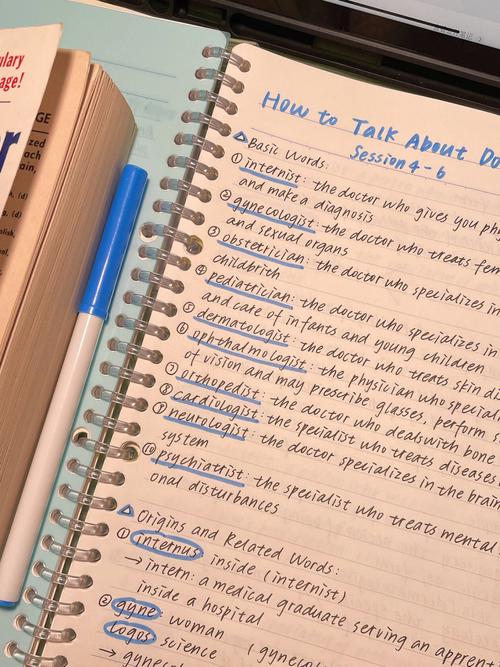 ulary
age!
r
GE
zed
ach
ain,
(d)
(d)
olish,
oal,
How to Talk About Do
Session 4-6
△ Basic Words:
① internist: the doctor who gives you ph
and make a diagnosis
② gynecologist: the doctor who treats fem
and sexual organs
③ obstetrician: the doctor who specializes in
childbrith
④ pediatrician: the doctor who specializes in
and care of infants and young children
⑤ dermatologist: the doctor who treats skin di
⑥ ophthalmologist: the physician who special
of vision and may prescribe glasses, perform
⑦ orthopedist: the doctor who deals with bone
⑧ cardiologist: the specialist who treats diseases
⑨ neurologist: the doctor specializes in the brain
system
⑩ psychiatrist: the specialist who treats mental
onal disturbances
△ Origins and Related Words:
① internus: inside (internist)
→ intern: a medical graduate serving an apprent
inside a hospital
② gyne: woman (gyneco
logos: science
→ gynecol